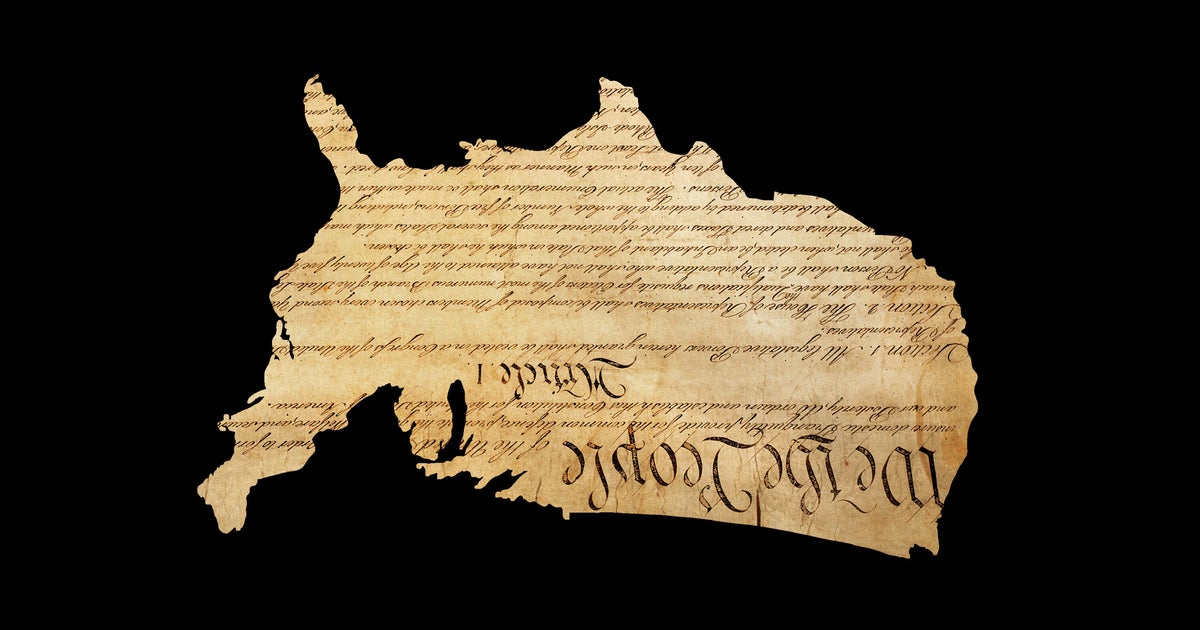 We the People of the United Order to form
insure domestic Tranquility, provide for the common defence, promote the Welfare, and secure
and our Posterity, do ordain and establish this Constitution for the United of America.
Article. I
Section. 1. All legislative Powers herein granted shall be vested in a Congress of the United
of Representatives.
Section. 2. The House of Representatives shall be composed of Members chosen every second
in each State shall have the Qualifications requisite for Electors of the most numerous Branch of the State
No Person shall be a Representative who shall not have attained to the Age of twenty five
shall not, when elected, be an Inhabitant of that State in which he shall be chosen.
and direct Taxes shall be apportioned among the several States which may
shall be determined by adding to the whole Number of free Persons, including
Persons. The actual Enumeration shall be made within
of ten Years, in such Manner as they shall
at Least one